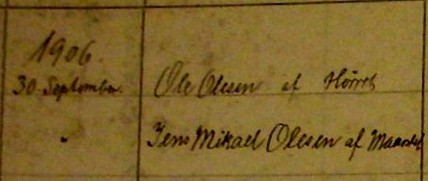 1906.
30 September. Ole Olesen af Hörret
" Jens Mikael Olesen af